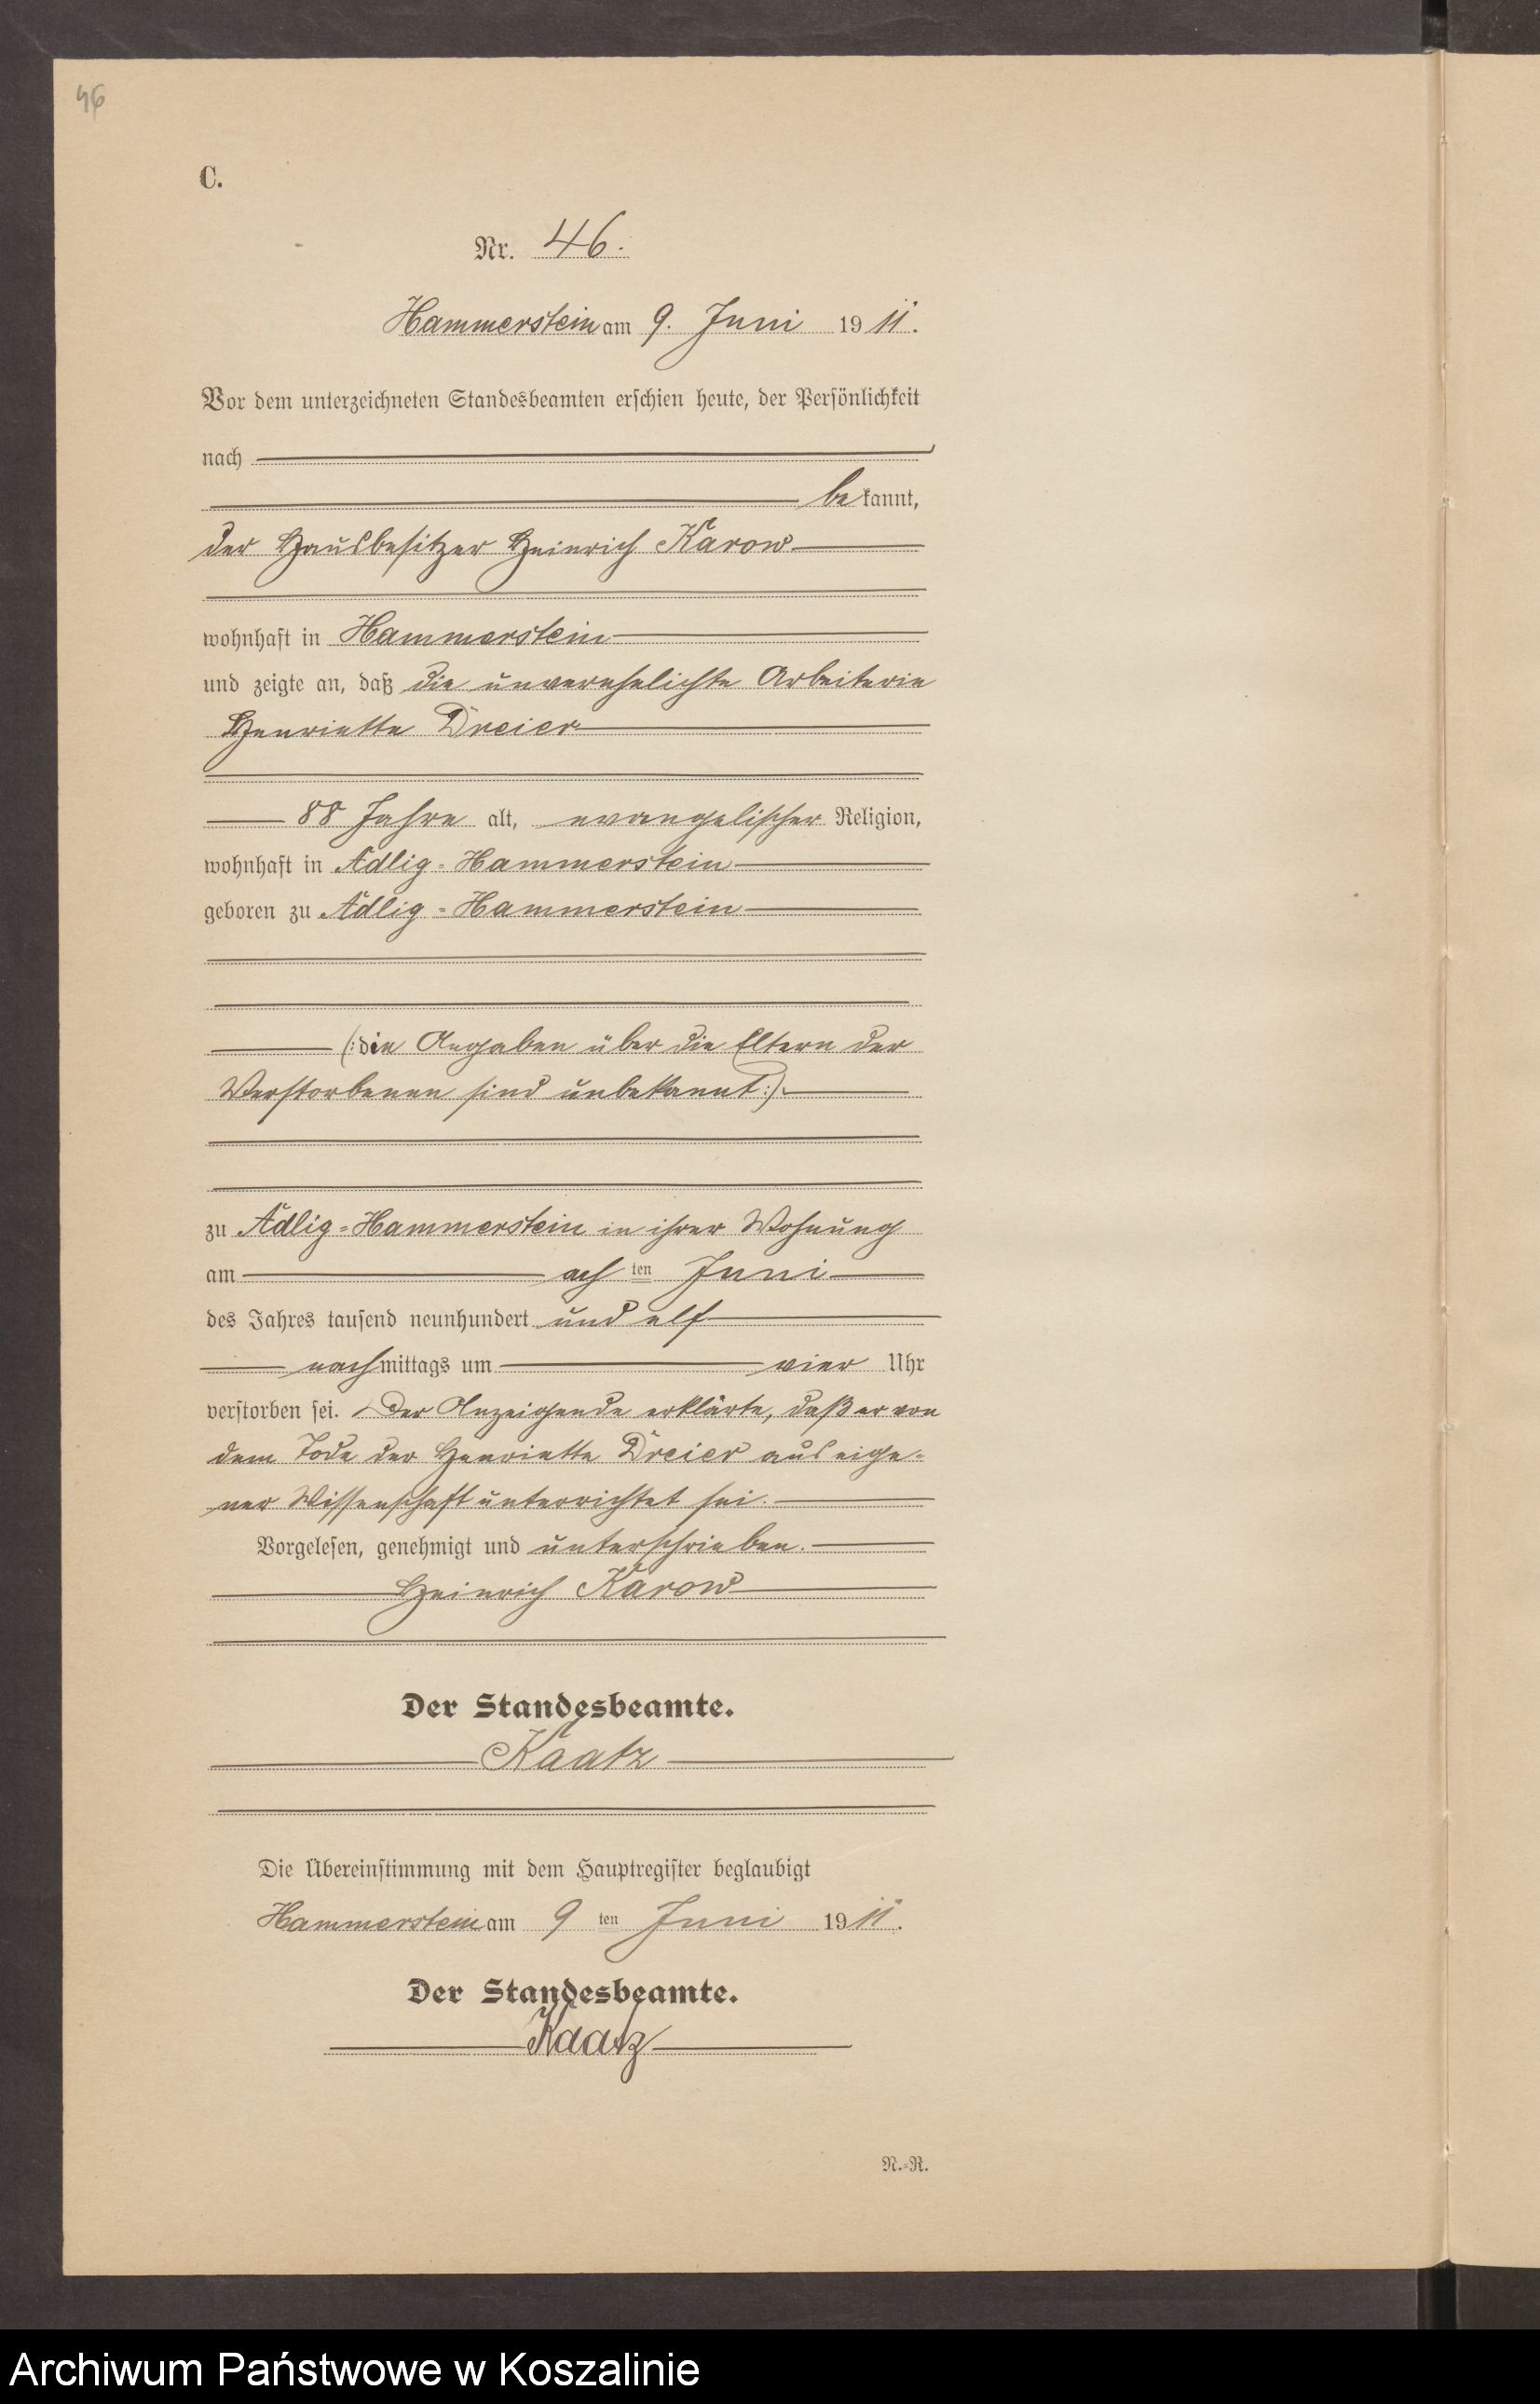 46
C.
Nr. 46.
Hammerstein am 9. Juni 1911.
Vor dem unterzeichneten Standesbeamten erschien heute, der Persönlichkeit
nach
bekannt,
der Hausbesitzer Heinrich Karow
wohnhaft in Hammerstein
und zeigte an, daß die unverehelichte Arbeiterin
Henriette Dreier
88 Jahre alt, evangelischer Religion,
wohnhaft in Adlig-Hammerstein
geboren zu Adlig-Hammerstein
(: die Angaben über die Eltern der
Verstorbenen sind unbekannt :)
zu Adlig-Hammerstein in ihrer Wohnung
am achten Juni
des Jahres tausend neunhundert und elf
nachmittags um vier Uhr
verstorben sei. Der Anzeigende erklärte, daß er von
dem Tode der Henriette Dreier aus eige-
ner Wissenschaft unterrichtet sei.
Vorgelesen, genehmigt und unterschrieben.
Heinrich Karow
Der Standesbeamte.
Kaatz
Die Übereinstimmung mit dem Hauptregister beglaubigt
Hammerstein am 9ten Juni 1911.
Der Standesbeamte.
Kaatz
N.-R.
Archiwum Państwowe w Koszalinie